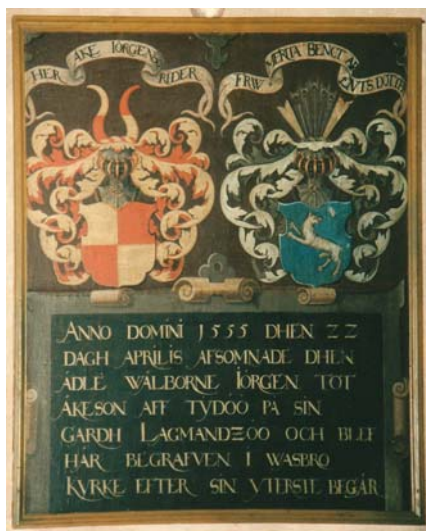 HER ÅKE IÖRGENS RIDER
FRW MERITA BENCT AR KNVTS DOTTER
ANNO DOMINI 1555 DHEN 22
DAGH APRILIS AFSOMNADE DHEN
ADLE WÄLBORNE IÖRGEN TOT
ÅKESON AFF TYDÖÖ PÅ SIN
GARDH LAGMANDZÖÖ OCH BLEF
HÄR BEGRAFVEN I WASBRO
KYRKE EFTER SIN YTERSTE BEGÄR